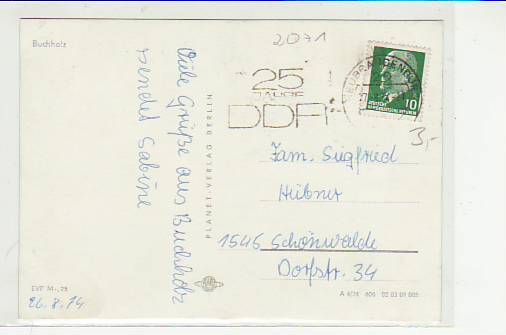 Buchholz
Viele Grüße aus Buchholz
sendet Sabine
EVP M -,25
26.8.74
PLANET-VERLAG BERLIN
2071
25
JAHRE
DDR
DEUTSCHE
DEMOKRATISCHE REPUBLIK
10
3,-
Fam. Siegfried
Hübner
1546 Schönwalde
Dorfstr. 34
A 4/74